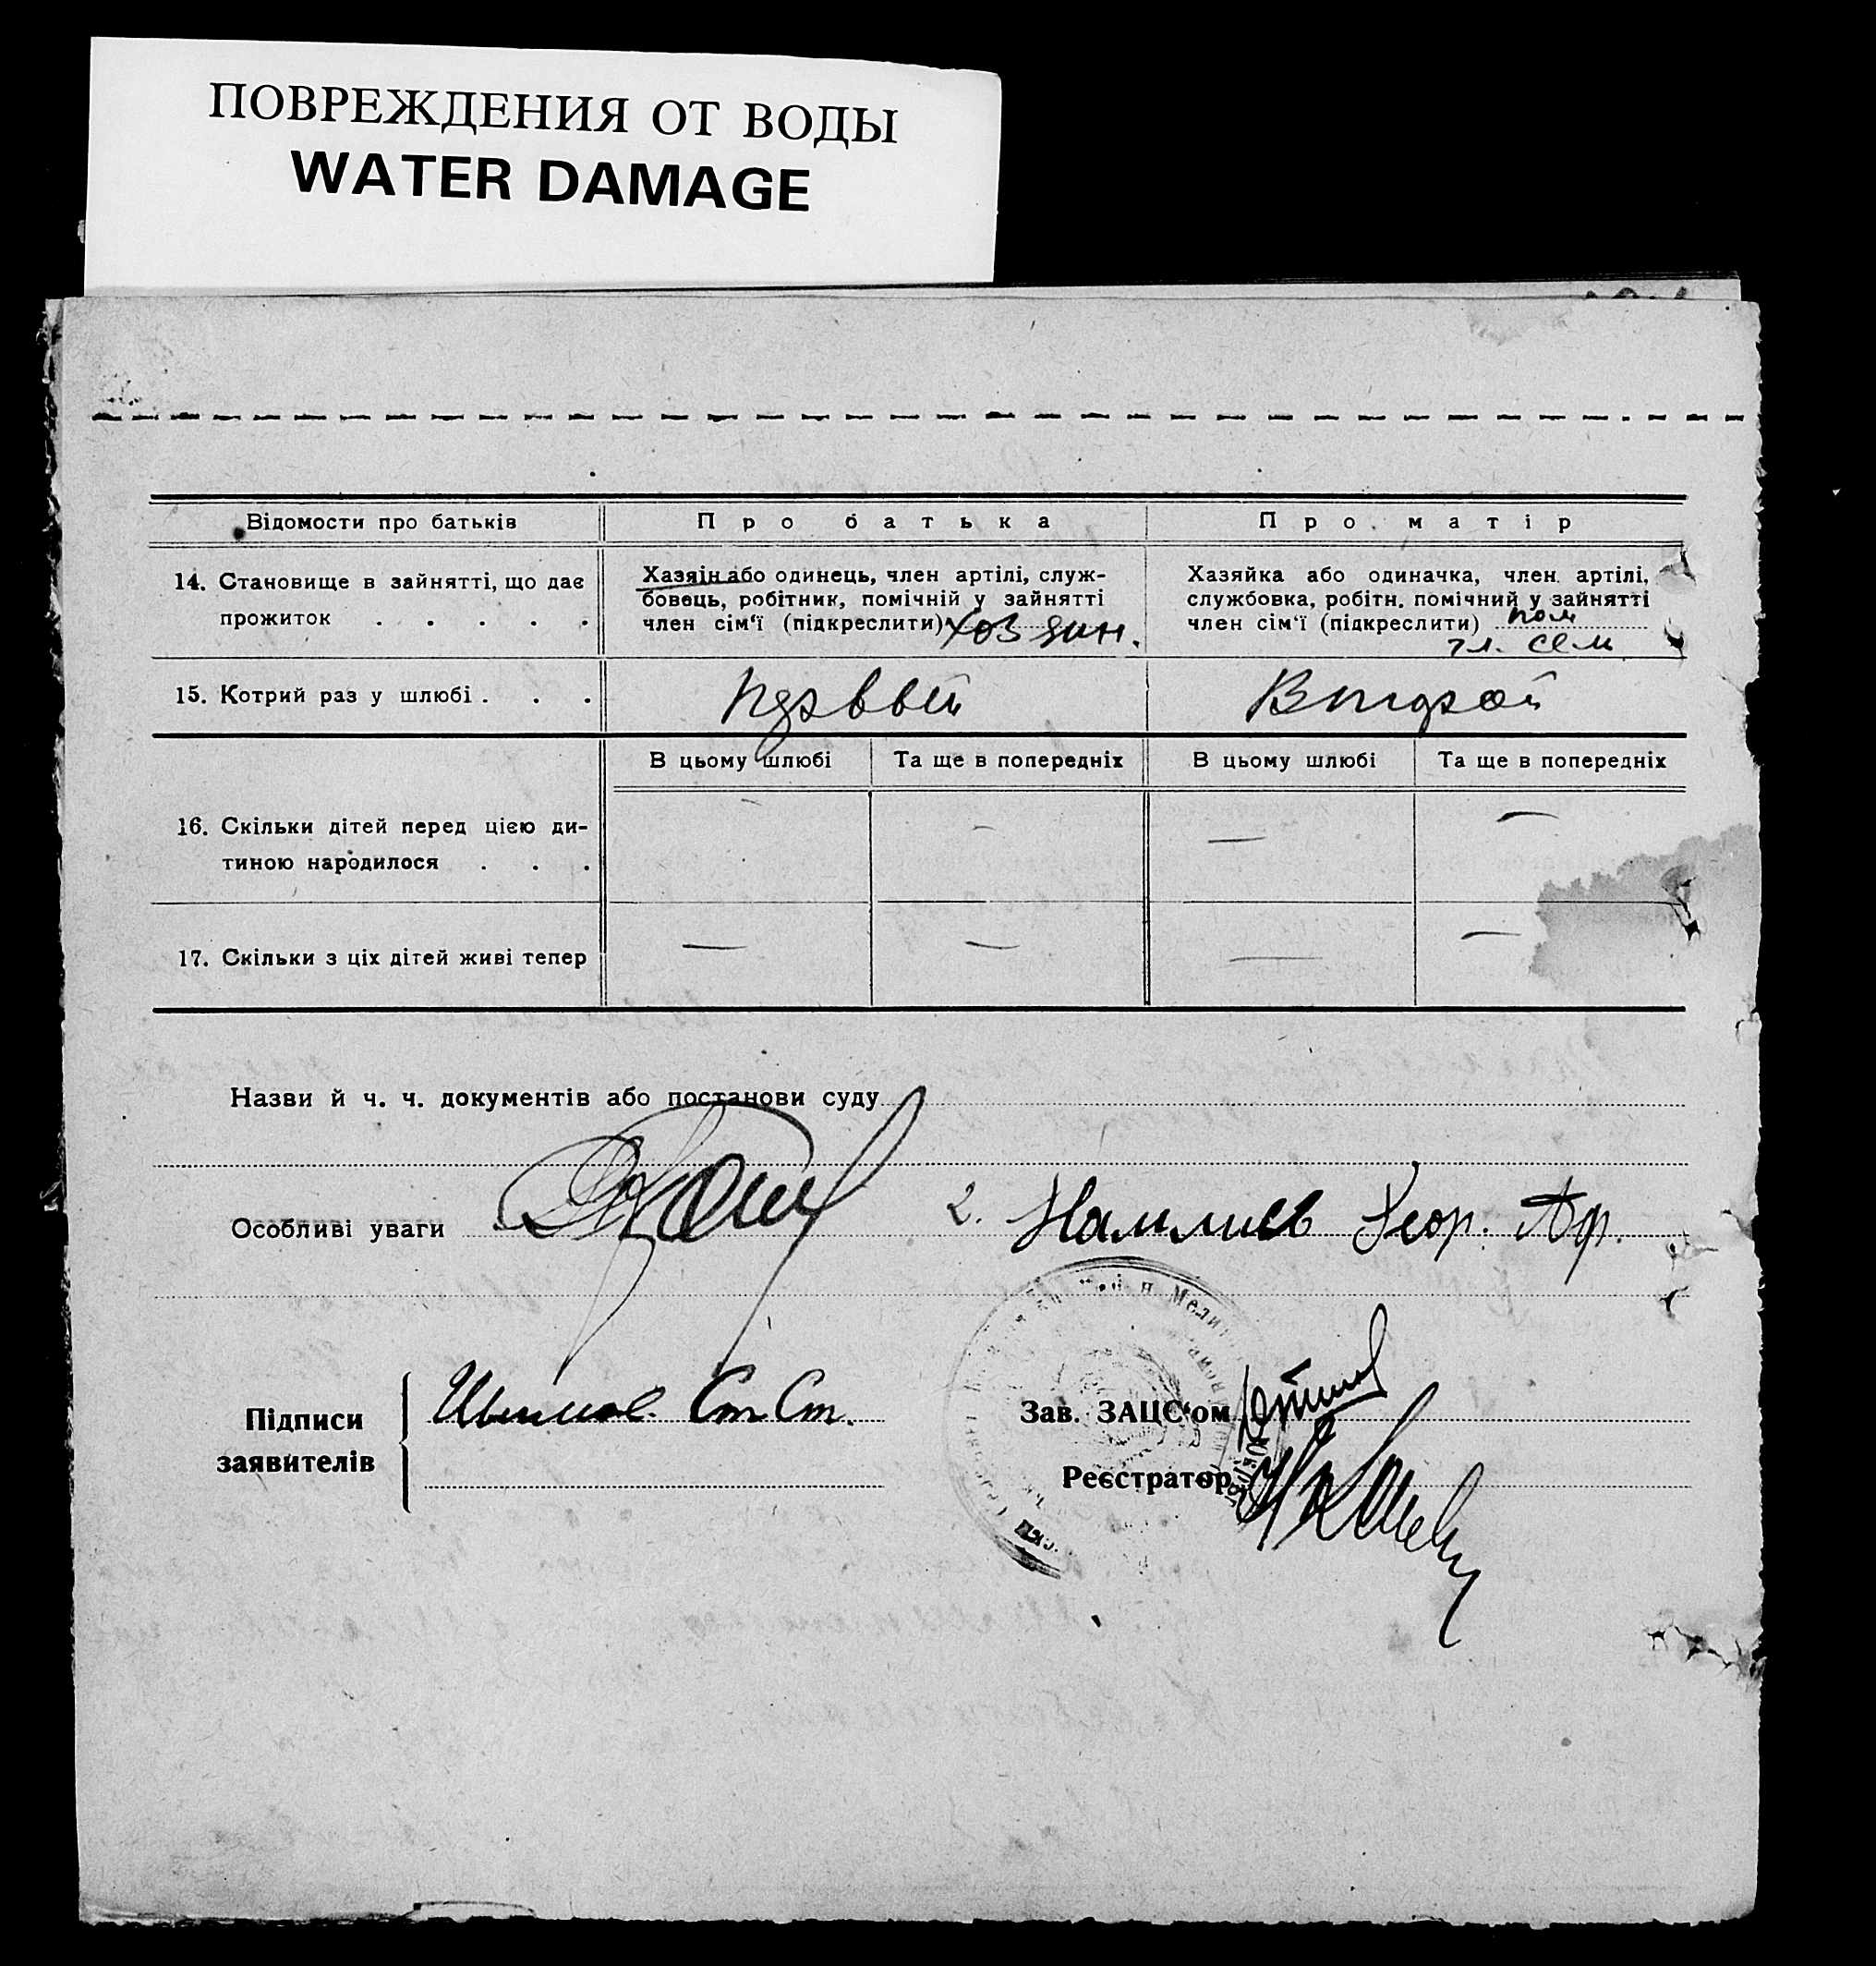 ПОВРЕЖДЕНИЯ ОТ ВОДЫ
WATER DAMAGE
Відомости про батьків
Про батька
Про матір
14. Становище в зайнятті, що дає
прожиток . . . . .
Хазяін або одинець, член артілі, служ-
бовець, робітник, помічній у зайнятті
член сім‘ї (підкреслити) хозяин.
Хазяйка або одиначка, член артілі,
службовка, робітн. помічний у зайнятті
член сім‘ї (підкреслити) пом
чл. сем
15. Котрий раз у шлюбі . . .
первый
Второй
В цьому шлюбі
Та ще в попередніх
В цьому шлюбі
Та ще в попередніх
16. Скільки дітей перед цією ди-
тиною народилося . . .
—
—
—
—
17. Скільки з ціх дітей живі тепер
—
—
—
—
Назви й ч. ч. документів або постанови суду
Особливі уваги
2. Геор. Аф.
Підписи
заявителів
Ст. Ст.
Зав. ЗАЦС‘ом
Реєстратор